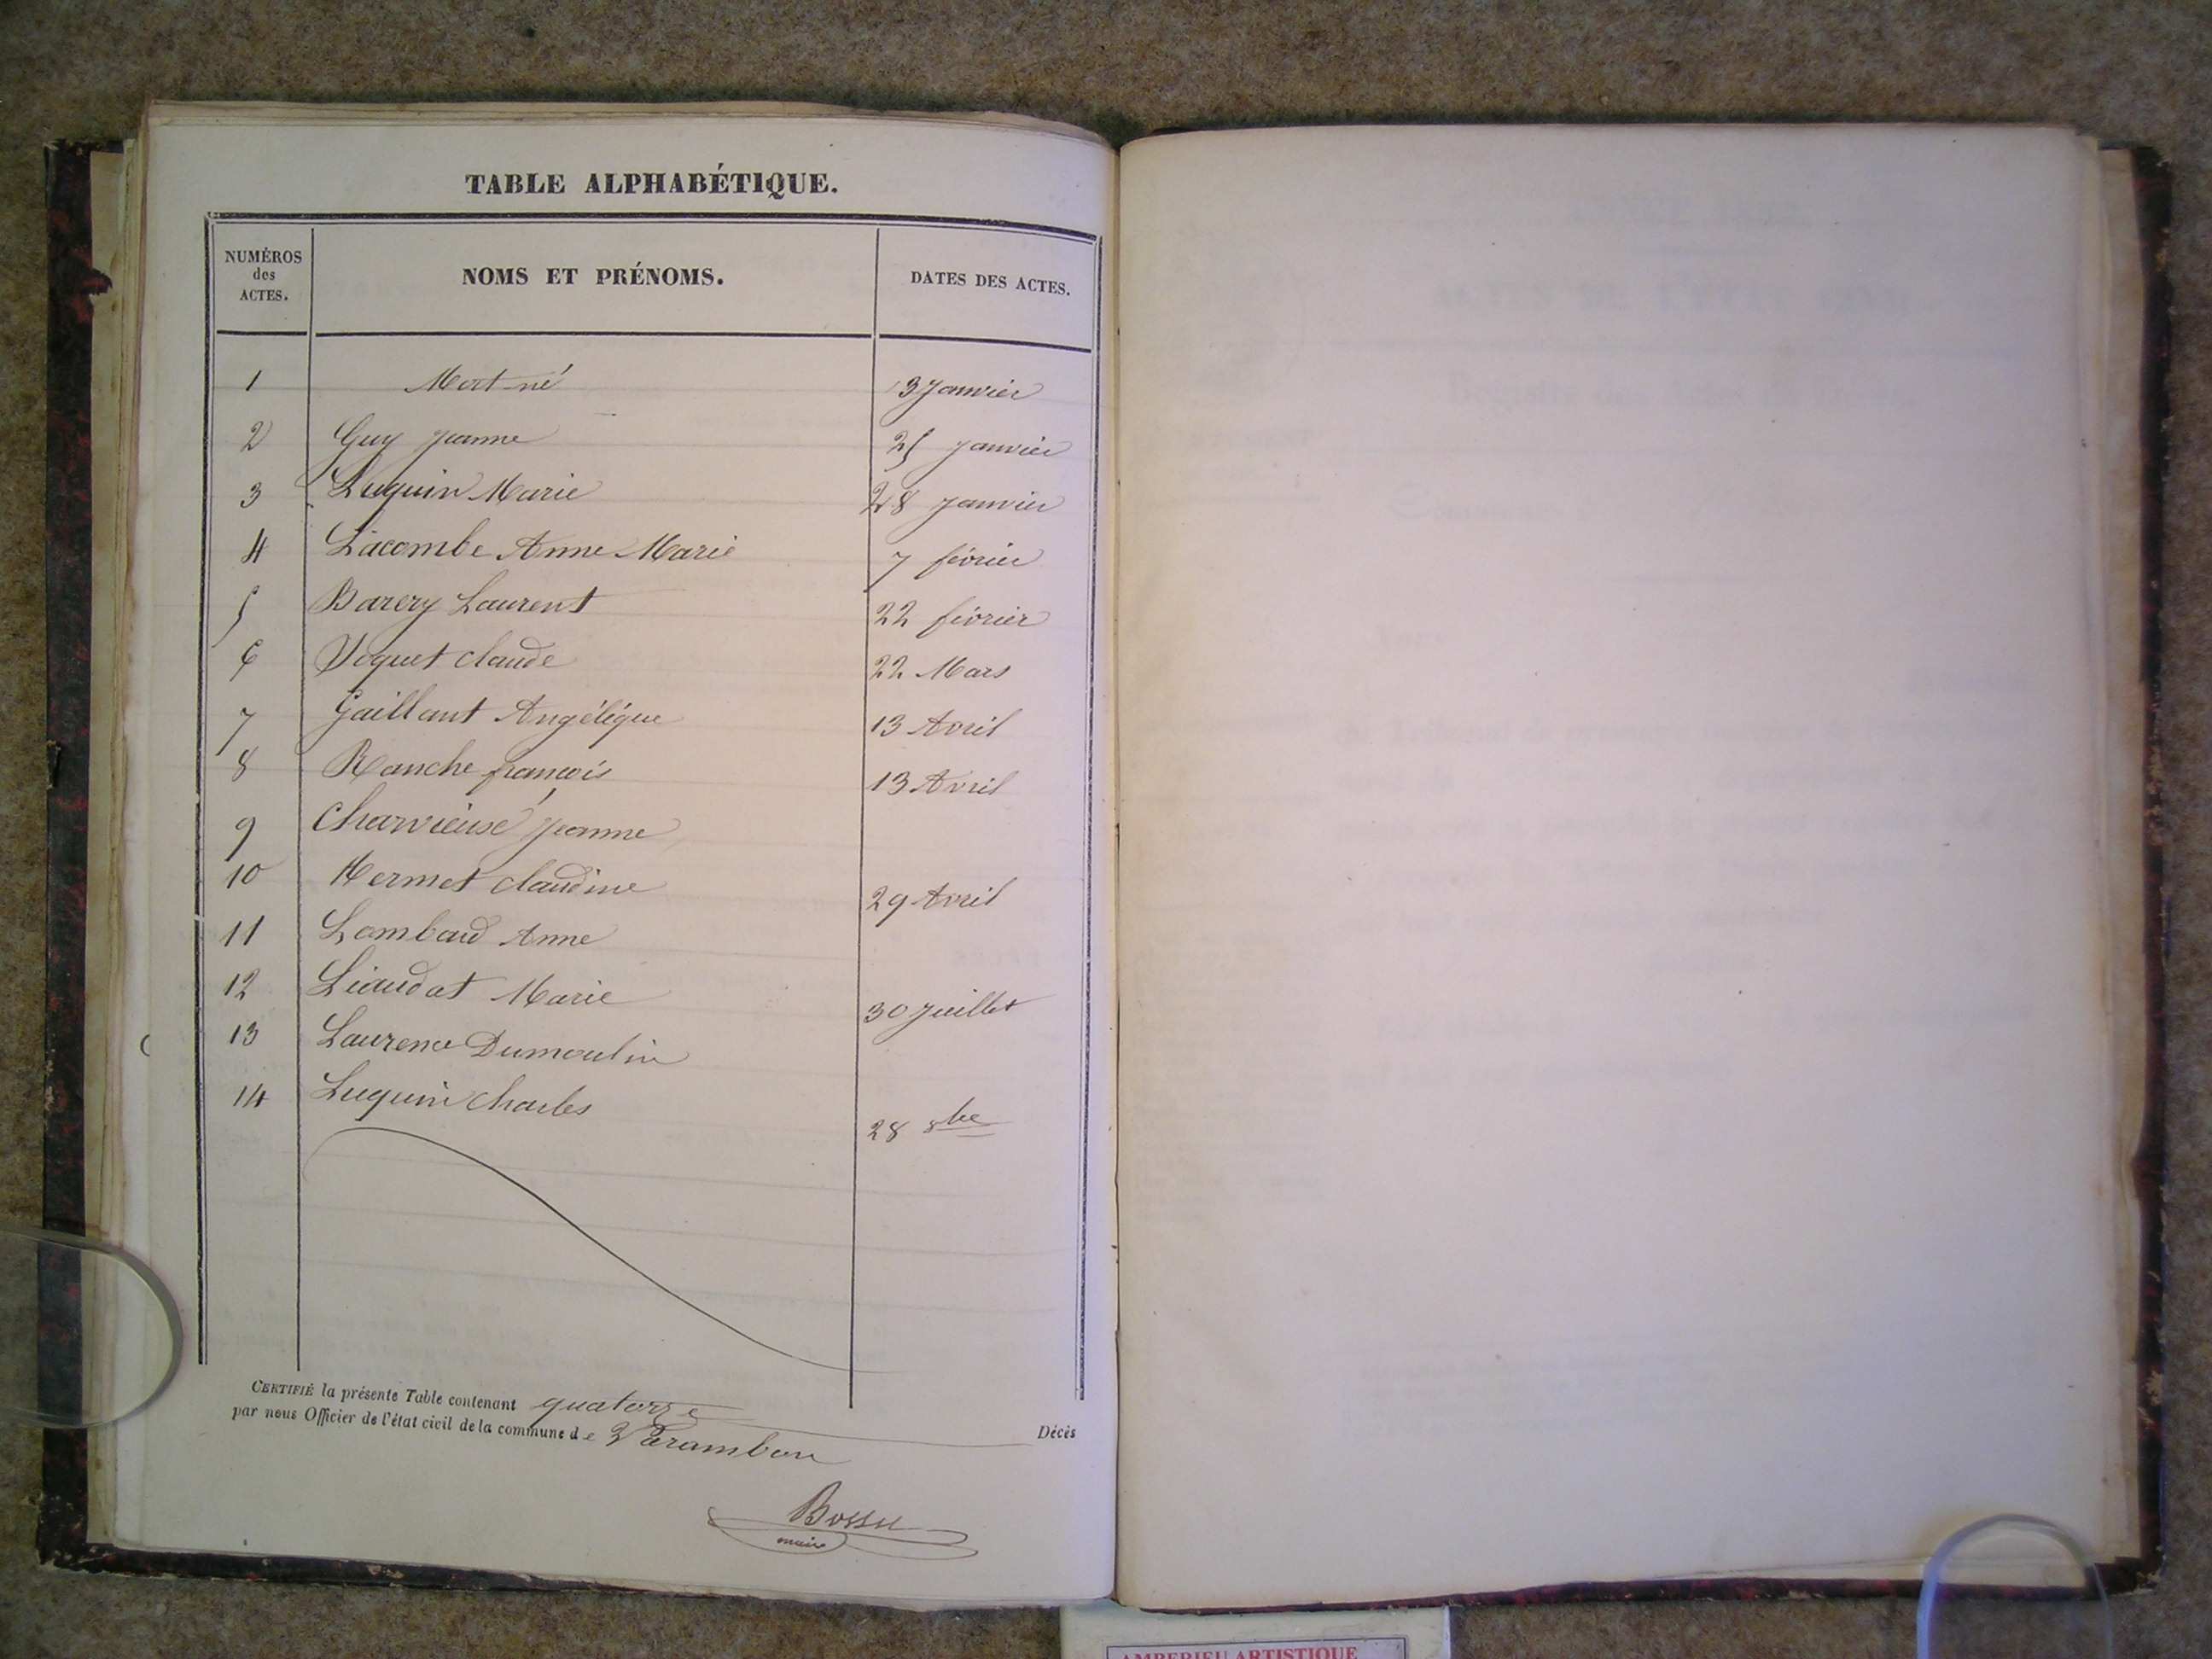 TABLE ALPHABÉTIQUE.
NUMÉROS
des
ACTES.
NOMS ET PRÉNOMS.
DATES DES ACTES.
1 Mort-né 13 Janvier
2 Guy Jeanne 25 Janvier
3 Luquin Marie 28 Janvier
4 Lacombe Anne Marie 7 février
5 Barery Laurent 22 février
6 Joguet Claude 22 Mars
7 Gaillant Angélique 13 Avril
8 Ranche françois 13 Avril
9 Charvieuse Jeanne
10 Mermet Claudine 29 Avril
11 Lombard Anne
12 Liaudat Marie 30 Juillet
13 Laurence Dumoulin
14 Luquin Charles 28 8bre
CERTIFIÉ la présente Table contenant quatorze Décès
par nous Officier de l'état civil de la commune de Varambon
Bossu
maire
AMBERIEU ARTISTIQUE